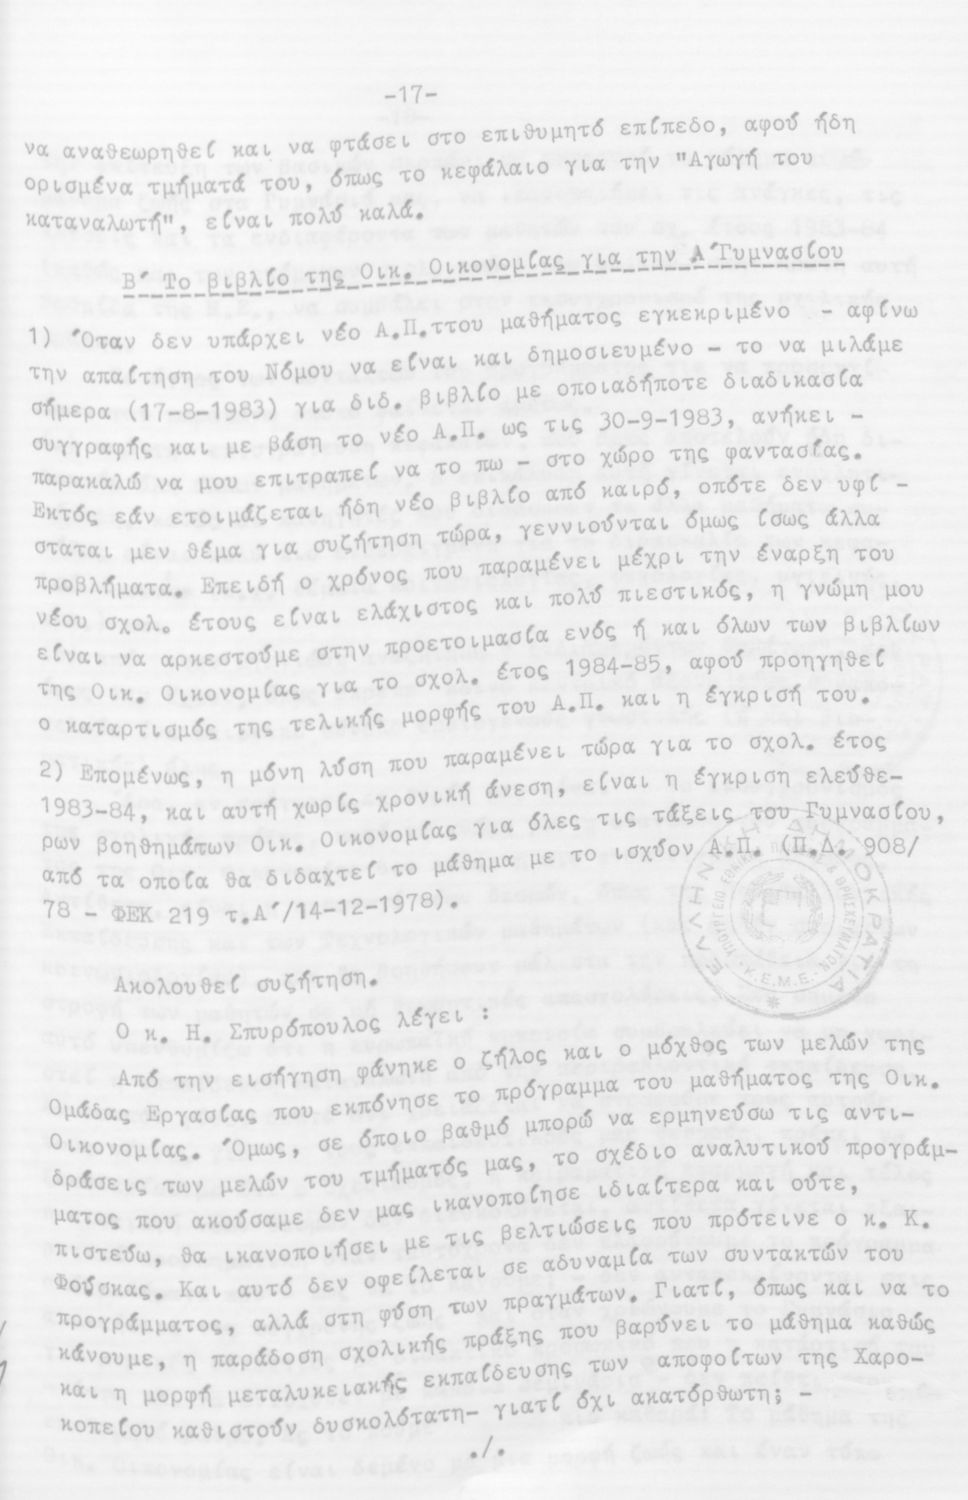 -17-
να αναθεωρηθεί και να φτάσει στο επιθυμητό επίπεδο, αφού ήδη
ορισμένα τμήματά του, όπως το κεφάλαιο για την "Αγωγή του
καταναλωτή", είναι πολύ καλά.
Β΄ Το βιβλίο της Οικ. Οικονομίας για την Α΄Γυμνασίου
1) Όταν δεν υπάρχει νέο Α.Π.ττου μαθήματος εγκεκριμένο - αφίνω
την απαίτηση του Νόμου να είναι και δημοσιευμένο - το να μιλάμε
σήμερα (17-8-1983) για διδ. βιβλίο με οποιαδήποτε διαδικασία
συγγραφής και με βάση το νέο Α.Π. ως τις 30-9-1983, ανήκει -
παρακαλώ να μου επιτραπεί να το πω - στο χώρο της φαντασίας.
Εκτός εάν ετοιμάζεται ήδη νέο βιβλίο από καιρό, οπότε δεν υφί -
σταται μεν θέμα για συζήτηση τώρα, γεννιούνται όμως ίσως άλλα
προβλήματα. Επειδή ο χρόνος που παραμένει μέχρι την έναρξη του
νέου σχολ. έτους είναι ελάχιστος και πολύ πιεστικός, η γνώμη μου
είναι να αρκεστούμε στην προετοιμασία ενός ή και όλων των βιβλίων
της Οικ. Οικονομίας για το σχολ. έτος 1984-85, αφού προηγηθεί
ο καταρτισμός της τελικής μορφής του Α.Π. και η έγκρισή του.
2) Επομένως, η μόνη λύση που παραμένει τώρα για το σχολ. έτος
1983-84, και αυτή χωρίς χρονική άνεση, είναι η έγκριση ελεύθε-
ρων βοηθημάτων Οικ. Οικονομίας για όλες τις τάξεις του Γυμνασίου,
από τα οποία θα διδαχτεί το μάθημα με το ισχύον Α.Π. (Π.Δ. 908/
78 - ΦΕΚ 219 τ.Α΄/14-12-1978).
ΕΛΛΗΝΙΚΗ ΔΗΜΟΚΡΑΤΙΑ
ΥΠΟΥΡΓΕΙΟ ΕΘΝΙΚΗΣ ΠΑΙΔΕΙΑΣ & ΘΡΗΣΚΕΥΜΑΤΩΝ
Κ.Ε.Μ.Ε.
Ακολουθεί συζήτηση.
Ο κ. Η. Σπυρόπουλος λέγει :
Από την εισήγηση φάνηκε ο ζήλος και ο μόχθος των μελών της
Ομάδας Εργασίας που εκπόνησε το πρόγραμμα του μαθήματος της Οικ.
Οικονομίας. Όμως, σε όποιο βαθμό μπορώ να ερμηνεύσω τις αντι-
δράσεις των μελών του τμήματός μας, το σχέδιο αναλυτικού προγράμ-
ματος που ακούσαμε δεν μας ικανοποίησε ιδιαίτερα και ούτε,
πιστεύω, θα ικανοποιήσει με τις βελτιώσεις που πρότεινε ο κ. Κ.
Φούσκας. Και αυτό δεν οφείλεται σε αδυναμία των συντακτών του
προγράμματος, αλλά στη φύση των πραγμάτων. Γιατί, όπως και να το
κάνουμε, η παράδοση σχολικής πράξης που βαρύνει το μάθημα καθώς
και η μορφή μεταλυκειακής εκπαίδευσης των αποφοίτων της Χαρο-
κοπείου καθιστούν δυσκολότατη- γιατί όχι ακατόρθωτη; -
./.